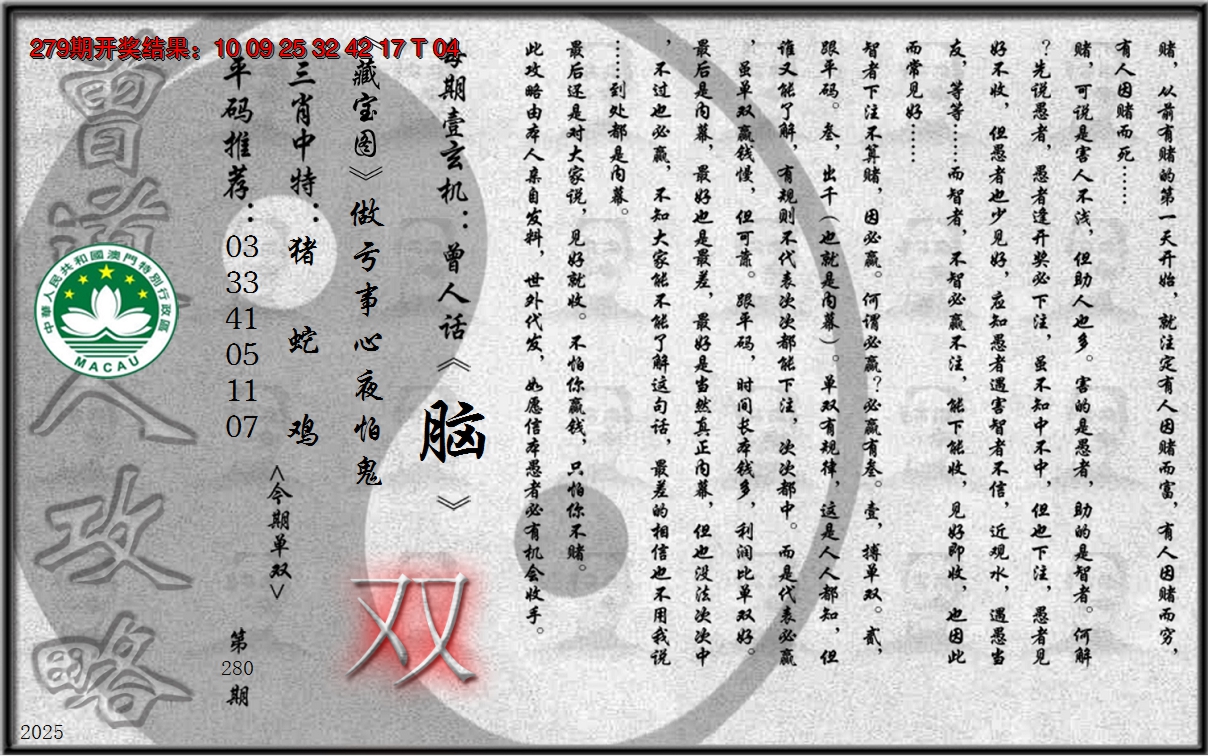 279期开奖结果：10 09 25 32 42 17 T 04
赌，从前有赌的第一天开始，就注定有人因赌而富，有人因赌而穷，
有人因赌而死……
赌，可说是害人不浅，但助人也多。害的是愚者，助的是智者。何解
？先说愚者，愚者逢开奖必下注，虽不知中不中，但也下注，愚者见
好不收，但愚者也少见好，应知愚者遇害智者不信，近观水，遇愚当
友，等等……而智者，不智必赢不注，能下能收，见好即收，也因此
而常见好……
智者下注不算赌，因必赢。何谓必赢？必赢有叁。壹，搏单双。贰，
跟平码。叁，出千（也就是内幕）。单双有规律，这是人人都知，但
谁又能了解，有规则不代表次次都能下注，次次都中。而是代表必赢
，虽单双赢钱慢，但可靠。跟平码，时间长本钱多，利润比单双好。
最后是内幕，最好也是最差，最好是当然真正内幕，但也没法次次中
，不过也必赢，不知大家能不能了解这句话，最差的相信也不用我说
……到处都是内幕。
最后还是对大家说，见好就收。不怕你赢钱，只怕你不赌。
此攻略由本人亲自发料，世外代发，如愿信本愚者必有机会收手。
每期壹玄机：曾人话《脑》
《藏宝图》做亏事心夜怕鬼
双
三肖中特：猪 蛇 鸡
<今期单双>
平码推荐：03 33 41 05 11 07
第280期
曾道人攻略
中華人民共和國澳門特別行政區
MACAU
2025